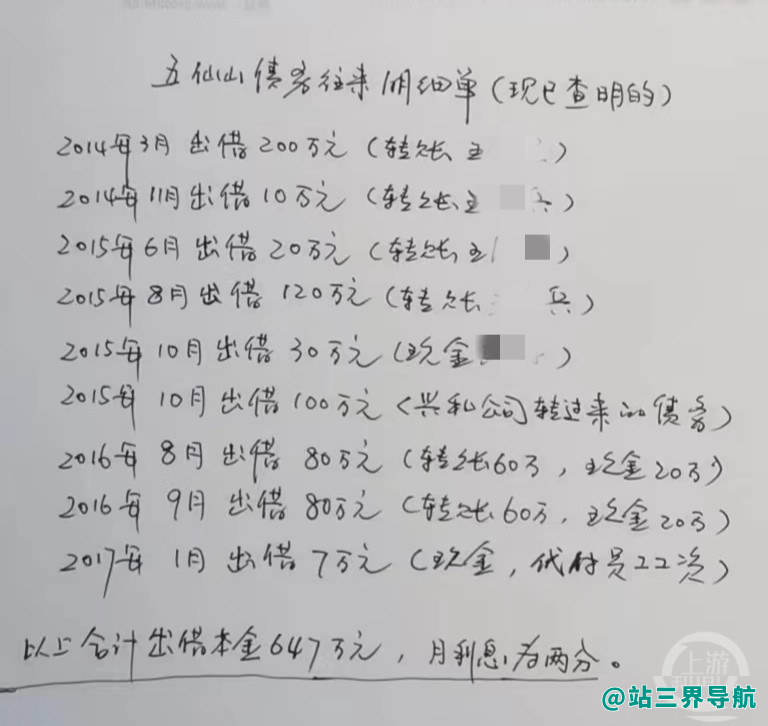 五仙山债务往来明细单(现已查明的)
2014年3月出借200万元(转账王 )
2014年11月出借10万元(转账王 兵)
2015年6月出借20万元(转账王 )
2015年8月出借120万元(转账 兵)
2015年10月出借30万元(现金 )
2015年10月出借100万元(兴和公司转过来的债务)
2016年8月出借80万元(转账60万,现金20万)
2016年9月出借80万元(转账60万,现金20万)
2017年1月出借7万元(现金,代付员工工资)
以上合计出借本金647万元,月利息为两分。
上游
@站三界导航